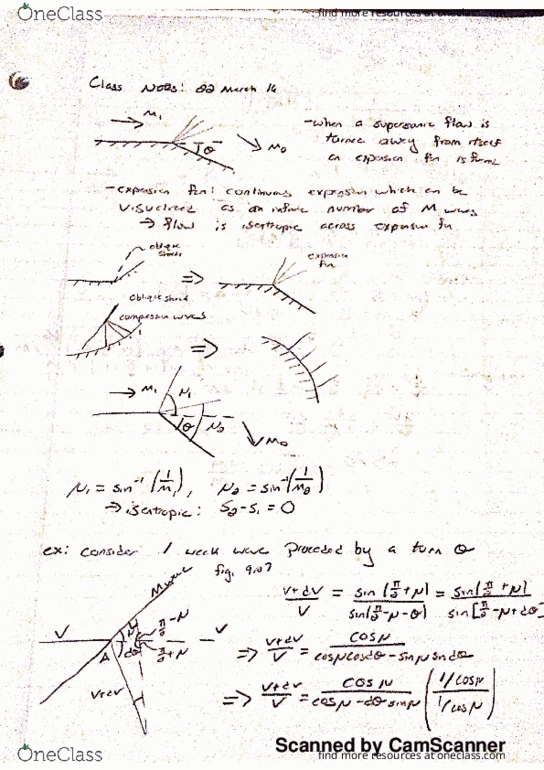 OneClass
find more resources at oneclass.com
Class Notes: 22 March 16
M₁
θ
M₂
- when a supersonic flow is
turned away from itself
an expansion fan is formed
- expansion fan: continuous expansion which can be
visualized as an infinite number of M waves
→ flow is isentropic across expansion fan
oblique
shock
⇒
expansion
fan
oblique shock
compression waves
⇒
→ M₁
μ₁
θ
μ₂
M₂
μ₁ = sin⁻¹ (1/M₁), μ₂ = sin⁻¹ (1/M₂)
→ isentropic: S₂-S₁ = 0
ex: consider 1 weak wave preceded by a turn θ
fig. 9.27
M wave
V
μ
π/2 - μ
π/2 + μ
V
A
dθ
V+dV
V+dV/V = sin(π/2+μ)/sin(π/2-μ-θ) = sin(π/2+μ)/sin[π/2-μ+dθ]
⇒ V+dV/V = cosμ/cosμcosdθ - sinμsindθ
⇒ V+dV/V = cosμ/cosμ - dθsinμ (1/cosμ/1/cosμ)
OneClass
Scanned by CamScanner
find more resources at oneclass.com